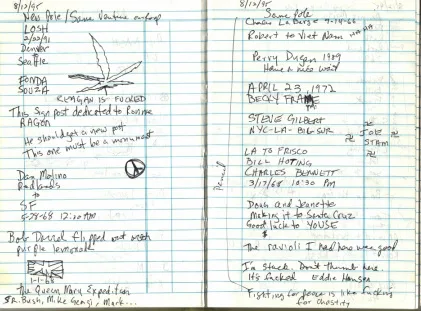 8/12/95
New Pole / Same Venture onramp
LOSH
2/22/91
Denver
to
Seattle
FONDA
SOUZA
REAGAN IS FUCKED
This sign post dedicated to Ronnie
RAGON
He should get a new post
This one must be a monument
Dan Molino
Redlands
to
SF
5-28-68 12:20 AM
Bob Darrel flipped out with
purple lemonade
1-1-68
The Queen Mary Expedition
SR. Bush, Mike Gengi, Mark...
8/12/95
Same Pole
Charles LaBarge 7-19-68
Robert to Viet Nam HA HA HA
Perry Dugan 1989
Have a nice wait
APRIL 23, 1972
BECKY FRAME
STEVE GILBERT
NYC-LA-BIG SUR
JOE
STAM
LA TO FRISCO
BILL HOTING
CHARLES BENNETT
3/17/68 10:30 PM
Pencil
Doug and Jeanette
Making it to Santa Cruz
Good luck to YOUSE
$
The ravioli I had here was good
I'm stuck. Don't thumb here.
It's fucked Eddie Hansen
Fighting for peace is like fucking
for chastity